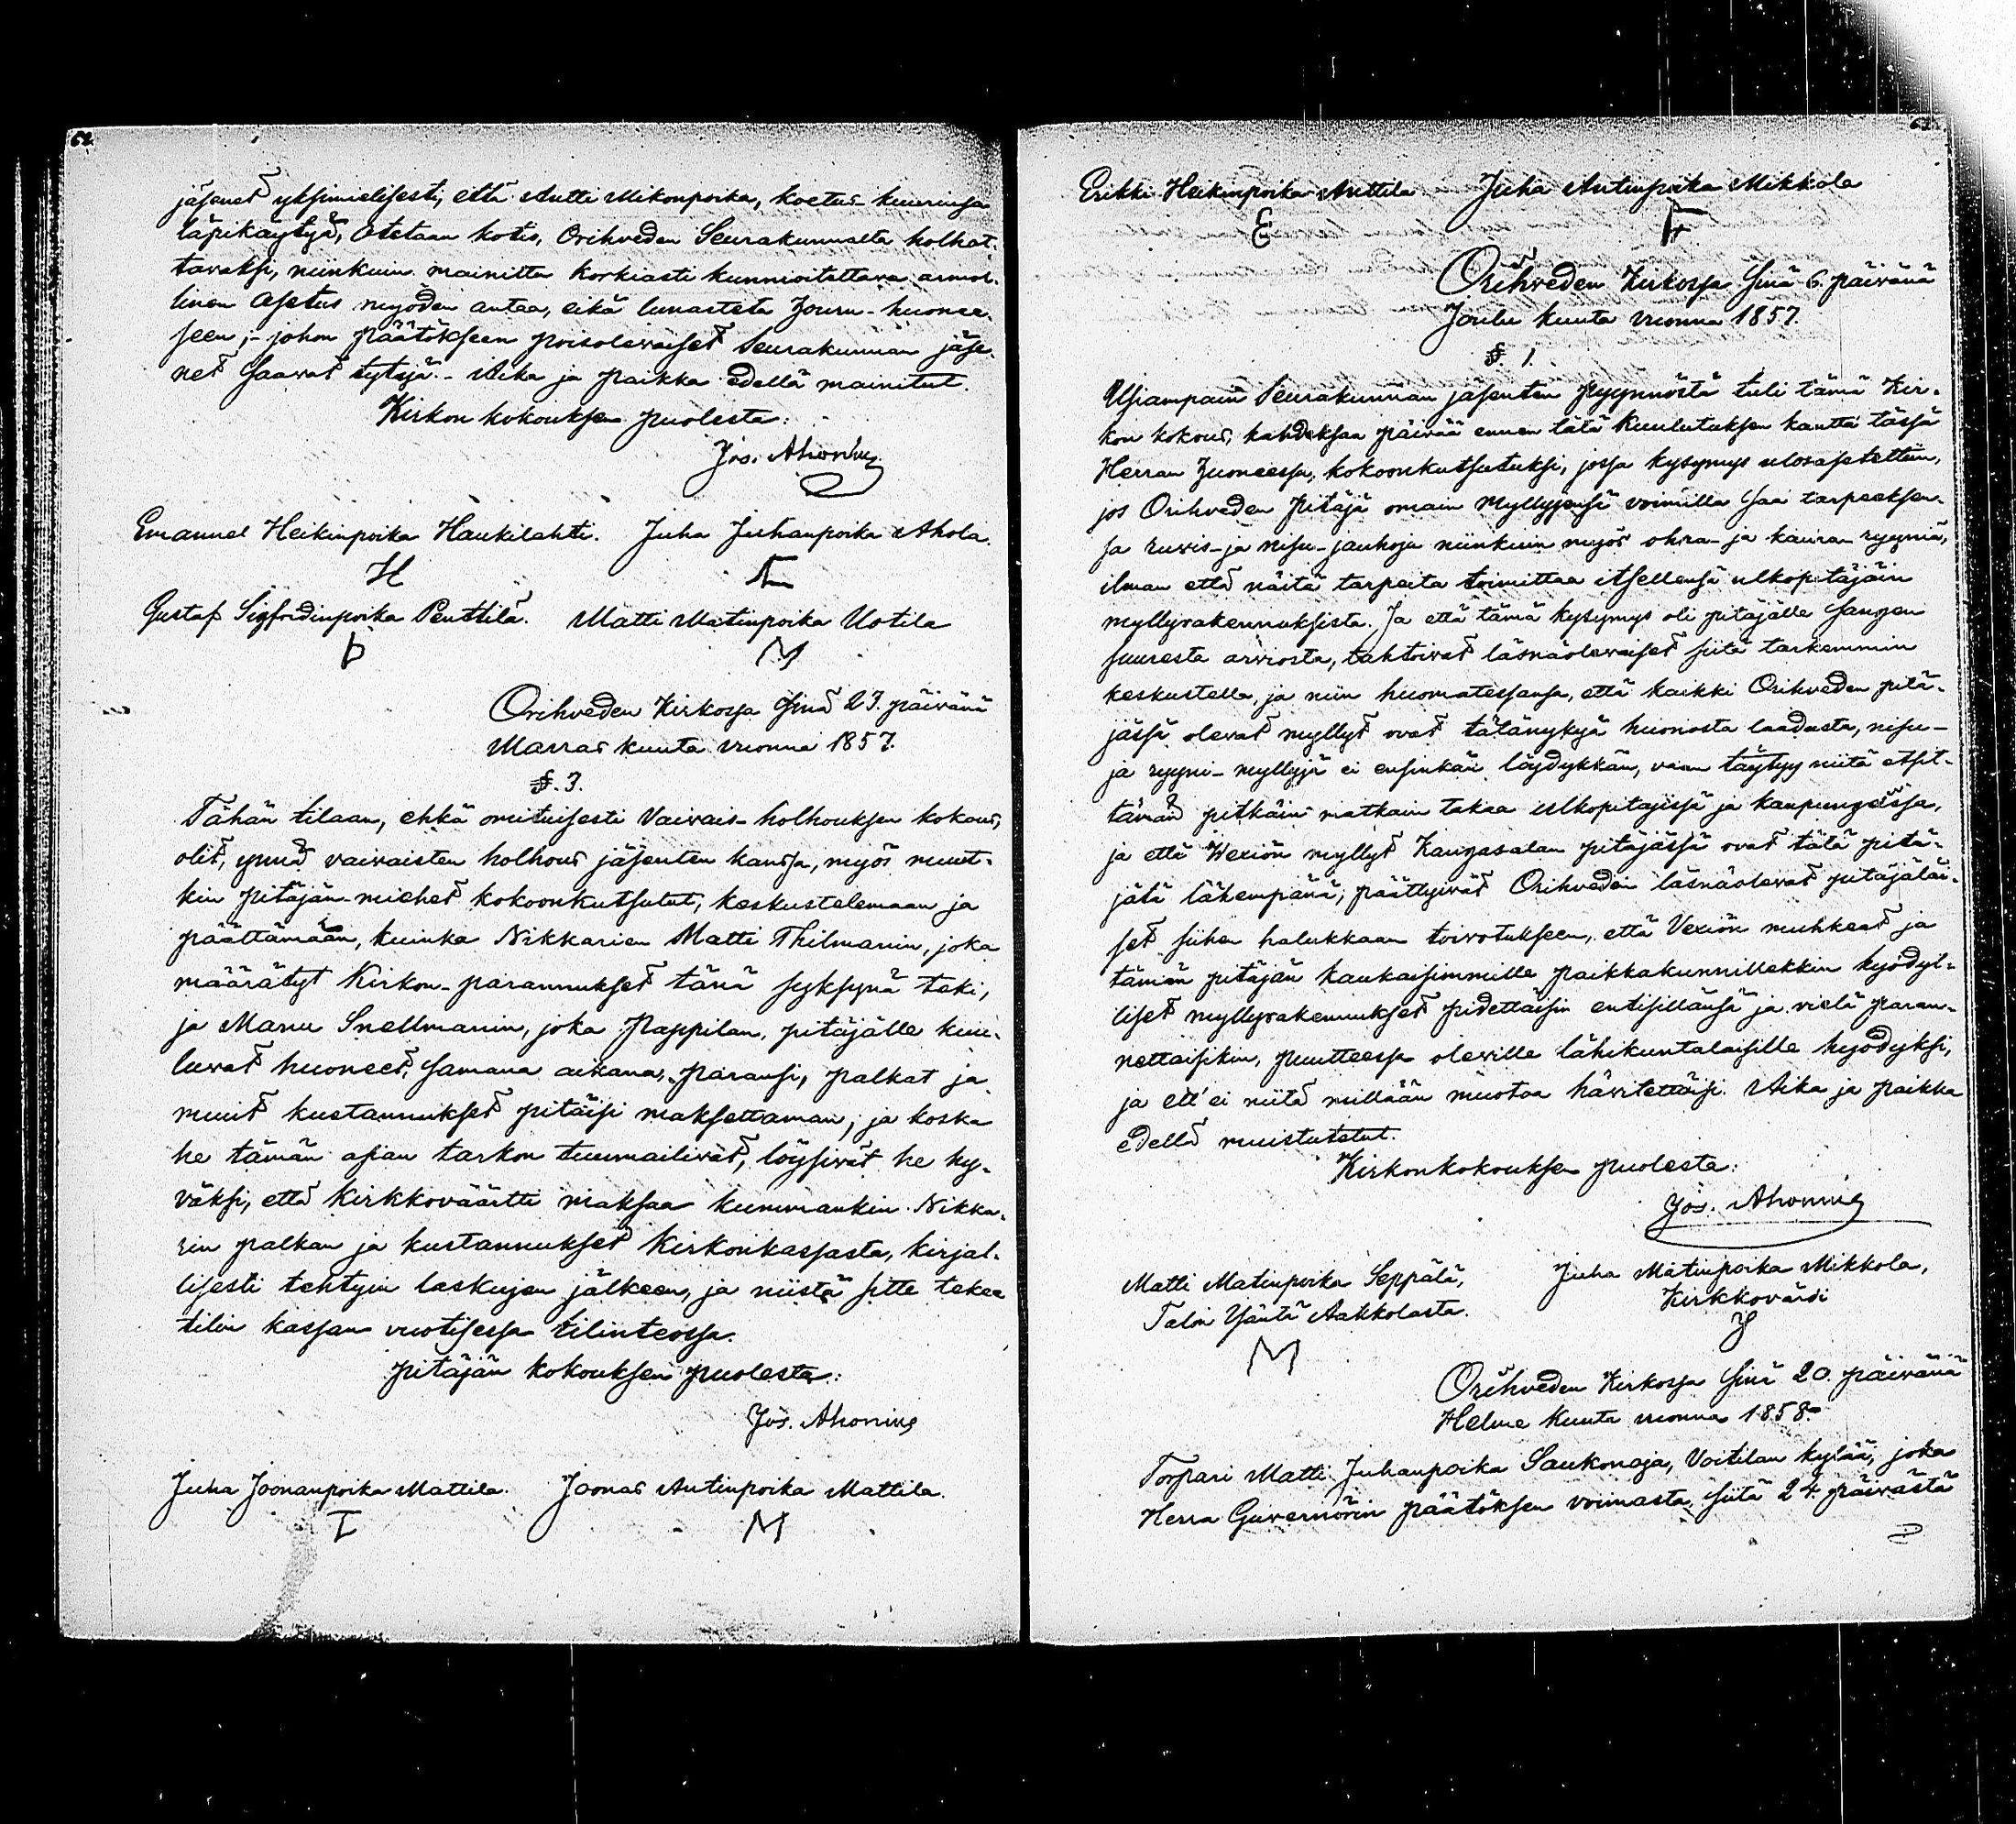 62.
jäsenet yksimielisesti, että Antti Mikonpoika, koetus-kuurinsa
läpikäytyä, otetaan kotio, Orihveden Seurakunnalta holhot-
tavaksi, niinkuin mainittu korkiasti kunnioitettava armol-
linen Asetus myöden antaa, eikä lunasteta houru-huonee-
seen; - johon päätökseen poisolevaiset Seurakunnan jäse-
net saavat tytyä. - Aika ja paikka edellä mainitut.
Kirkon kokouksen puolesta:
Jos. Ahonius
Emanuel Heikinpoika Haukilahti. Juha Juhanpoika Ahola.
H A
Gustaf Sigfridinpoika Penttilä. Matti Matinpoika Uotila
P M
Orihveden Kirkossa Sinä 23. päivänä
Marras kuuta vuonna 1857.
§. 3.
Tähän tilaan, ehkä omituisesti Vaivais-holhouksen kokous,
olit, ynnä vaivaisten holhous jäsenten kanssa, myös muut-
kin pitäjän-miehet kokoonkutsutut, keskustelemaan ja
päättämään, kuinka Nikkarien Matti Thilmanin, joka
määrätyt Kirkon-parannukset tänä syksynä teki,
ja Manu Snellmanin, joka Pappilan, pitäjälle kuu-
luvat huoneet, samana aikana, paransi, palkat ja
muut kustannukset pitäisi maksettaman; ja koska
he tämän asian tarkon tuumailivat, löysivät he hy-
väksi, että Kirkkoväärtti maksaa kummankin Nikka-
rin palkan ja kustannukset Kirkonkassasta, kirjal-
lisesti tehtyin laskujen jälkeen, ja niistä sitte tekee
tilin kassan vuotisessa tilinteossa.
pitäjän kokouksen puolesta:
Jos. Ahonius
Juha Joonanpoika Mattila. Joonas Antinpoika Mattila.
I M
63.
Erikki Heikinpoika Anttila Juha Antinpoika Mikkola
E
Orihveden Kirkossa Sinä 6. päivänä
Joulu kuuta vuonna 1857.
§. 1.
Usiampain Seurakunnan jäsenten pyynnöstä tuli tämä Kir-
kon kokous, kahdeksaa päivää ennen tätä Kuulutuksen kautta tässä
Herran Huoneessa, kokoonkutsutuksi, jossa kysymys ulosasetettiin,
jos Orihveden Pitäjä omain Myllyjensä voimilla saa tarpeeksen-
sa ruvis- ja nisu-jauhoja niinkuin myös ohra- ja kaura- ryyniä,
ilman että näitä tarpeita toimittaa itsellensä ulkopitäjäin
myllyrakennuksista. Ja että tämä kysymys oli pitäjälle sangen
suuresta arviosta, tahtoivat läsnäolevaiset siitä tarkemmin
keskustella, ja niin huomatessansa, että kaikki Orihveden pitä-
jässä olevat myllyt ovat tätänykyä huonosta laadusta, nisu-
ja ryyni-myllyjä ei ensinkän löydykkän, vaan täytyy niitä etsit-
tämän pitkäin matkain takaa ulkopitäjissä ja kaupungeissa,
ja että Wexiön myllyt Kangasalan pitäjässä ovat tätä pitä-
jätä lähempänä; päättyivät Orihveden läsnäolevat pitäjäläi-
set siihen halukkaan toivotukseen, että Vexiön muhkeat ja
tämän pitäjän kaukaisimmille paikkakunnillekkin hyödyl-
liset myllyrakennukset pidettäisin entisillänsä ja vielä paran-
nettaisikin, puutteessa oleville lähikuntalaisille hyödyksi,
ja ett' ei niitä millään muotoa hävitettäisi. Aika ja paikka
edellä muistutetut.
Kirkonkokouksen puolesta:
Jos. Ahonius
Matti Matinpoika Seppälä, Juha Matinpoika Mikkola,
Talon Isäntä Aakkolasta. Kirkkovärdi
M
Orihveden Kirkossa Sinä 20. päivänä
Helme Kuuta vuonna 1858.
Torpari Matti Juhanpoika Saukonoja, Voitilan kylää, joka
Herra Guvernörin päätöksen voimasta siitä 24. päivästä